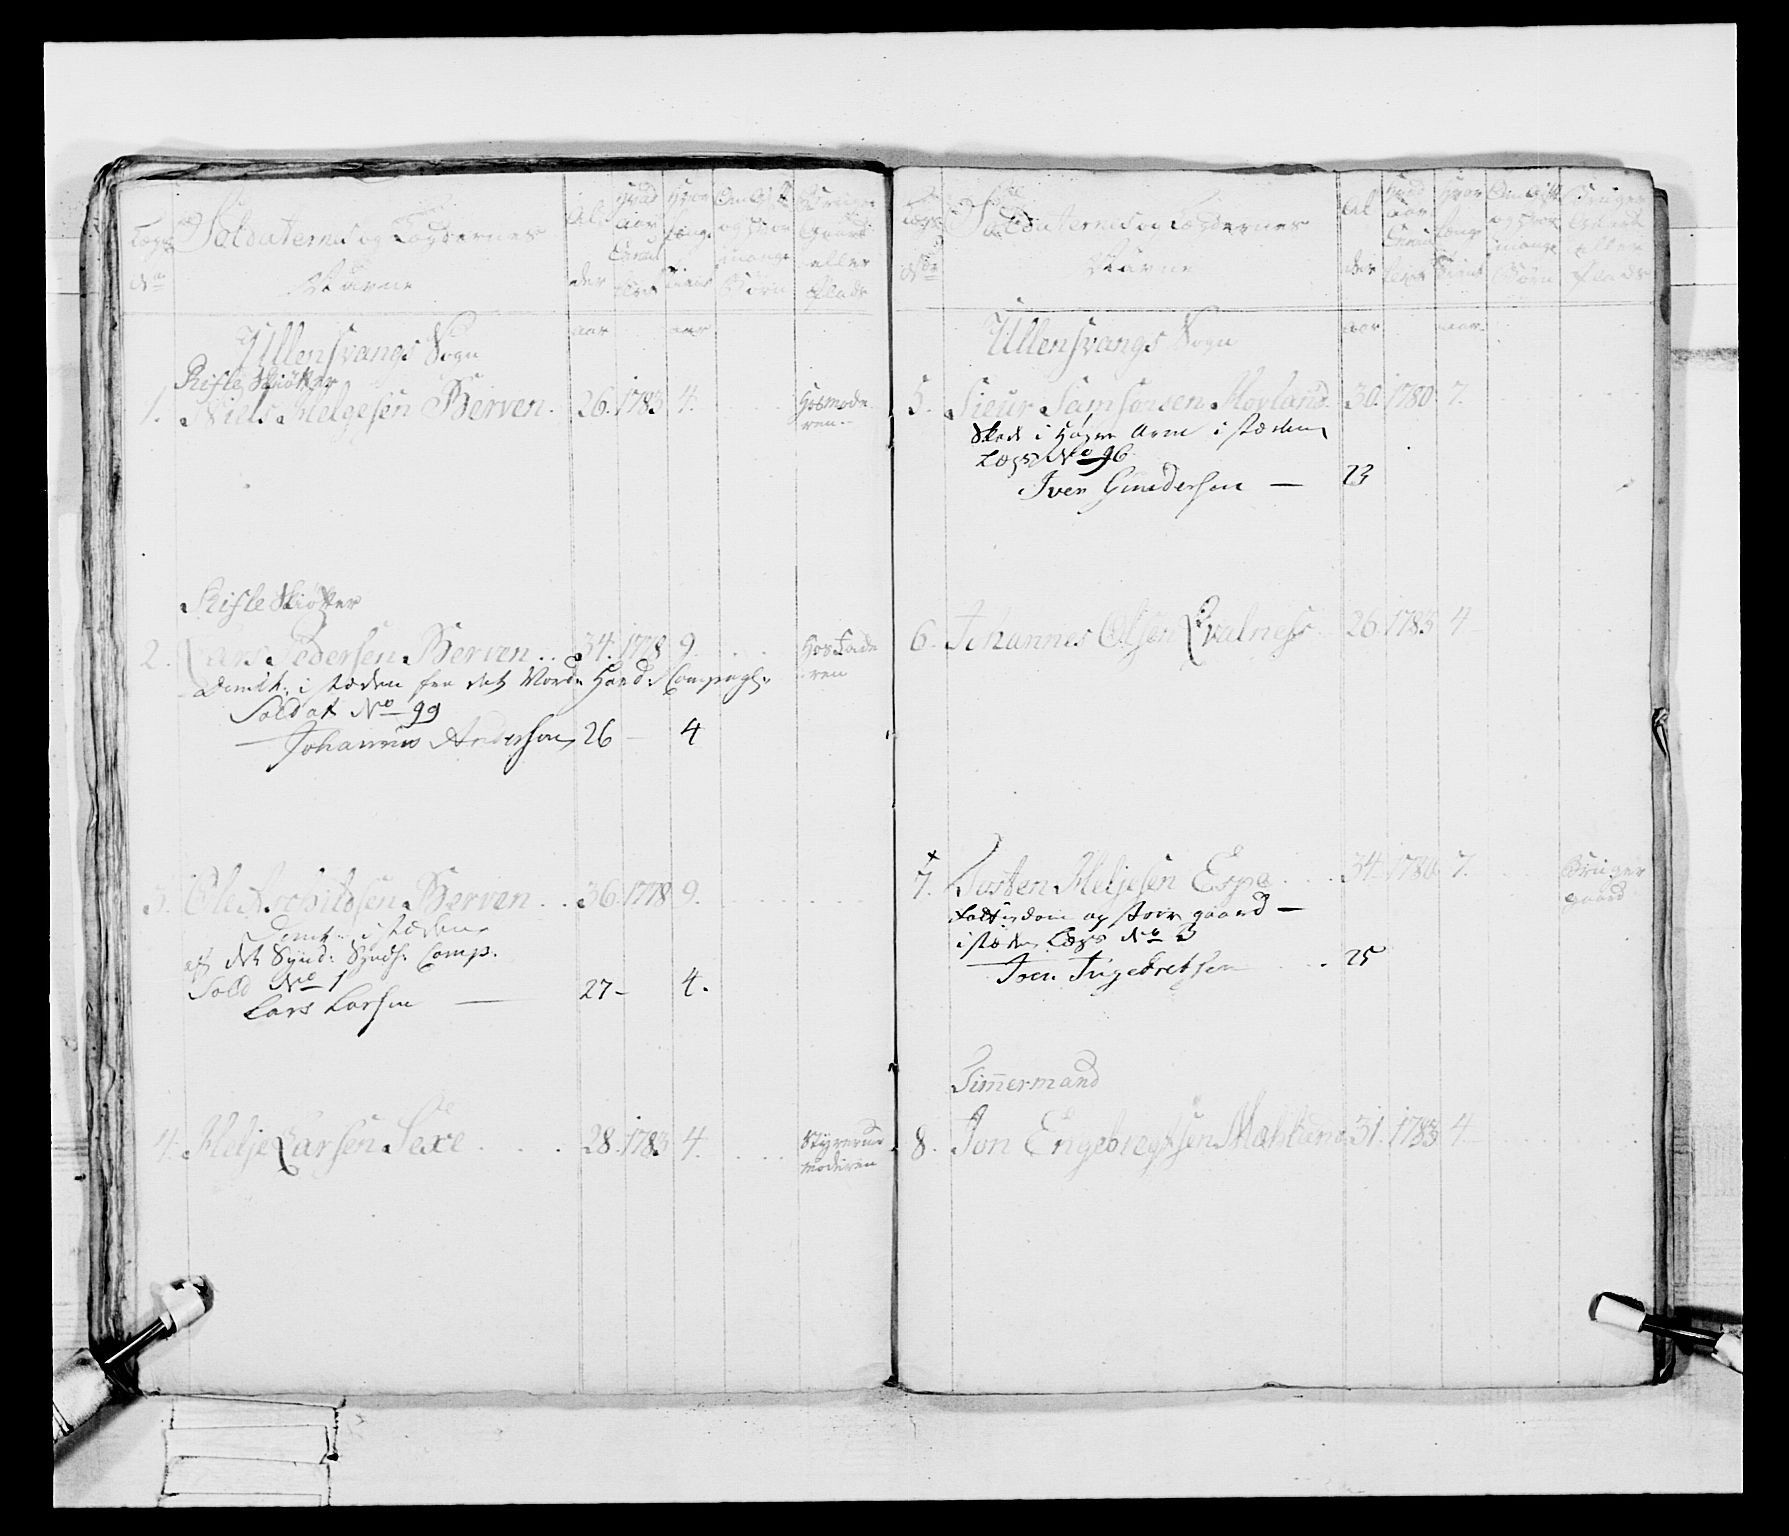 Lægs No
Soldaternes og Lægdernes Navne
Alder
Hvad aar Enroulleret
Hvor længe tient
Om Gift og hvor mange Børn
Bruger Gaard eller Plads
aar
aar
Ullensvangs Sogn
Rifle Skiötter
1. Niels Helgesen Berven. 26. 1783 4. Hos mode
ren.
Rifle Skiötter
2. Lars Pedersen Berven .. 34. 1778 9. Hos Fade
ren
Dimit: i stæden fra det Nord: Hard: Compagl:
Soldat No 99
Johannes Andersen 26 - 4
3. Ole Berven .. 36. 1778 9.
Dimt: i stæden
af det Synd: Comp.
Sold No 1
Lars Larsen — 27 - 4.
4. Helje Larsen Sexe .... 28. 1783 4. Styrer
moderen
Lægs No
Soldaternes og Lægdernes Navne
Alder
Hvad aar Enroulleret
Hvor længe tient
Om Gift og hvor mange Børn
Bruger Gaard eller Plads
aar
aar.
Ullensvangs Sogn
5. Sieur Samsonsen Hovland. 30. 1780. 7.
Skade i Høyre Arm i stæden
Lægs No 96
Iver Gundersen — 23
6. Johannes Olsen Qvalness 26. 1783 4
+
7. Torsten Heljesen Espe ... 34. 1780 7. Bruger
gaard
og stoer gaard —
i stæden Lægs No 3
Iver Ingebretsen .. 25
Timmermand
8. Jon Engebregtsen Måhlund 31. 1783 4